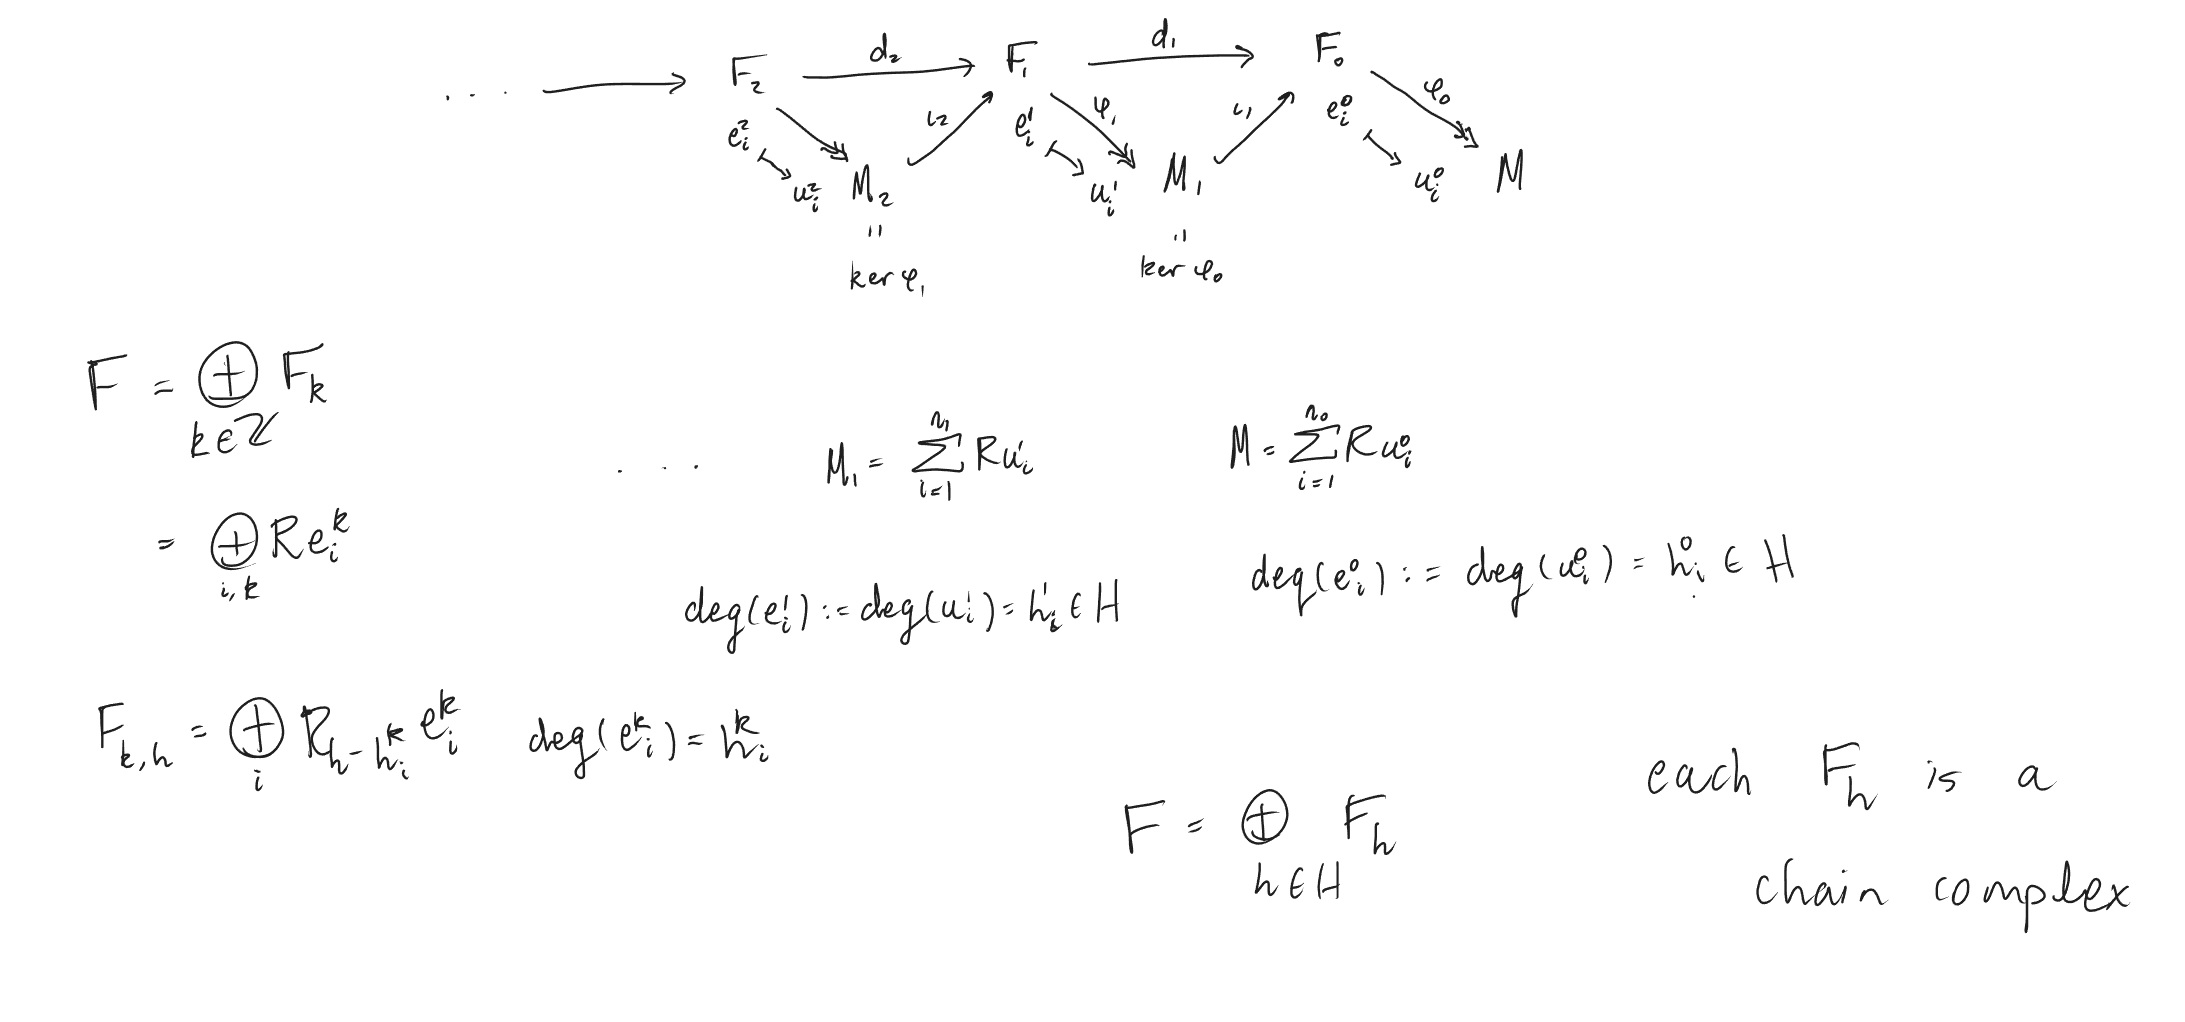 · · · ⟶ F₂ —d₂→ F₁ —d₁→ F₀
φ₀
e_i^2 ↦ u_i^2 M₂ ι₂ e_i^1 φ₁ ↦ u_i^1 M₁ ι₁ e_i^0 ↦ u_i^0 M
= =
ker φ₁ ker φ₀
F = ⊕_{k∈ℤ} F_k
· · · M₁ = ∑_{i=1}^{n₁} R u_i^1 M = ∑_{i=1}^{n₀} R u_i^0
= ⊕_{i,k} R e_i^k
deg(e_i^1) := deg(u_i^1) = h_i^1 ∈ H deg(e_i^0) := deg(u_i^0) = h_i^0 ∈ H
F_{k,h} = ⊕_i R_{h-h_i^k} e_i^k deg(e_i^k) = h_i^k
F = ⊕_{h∈H} F_h
each F_h is a
chain complex